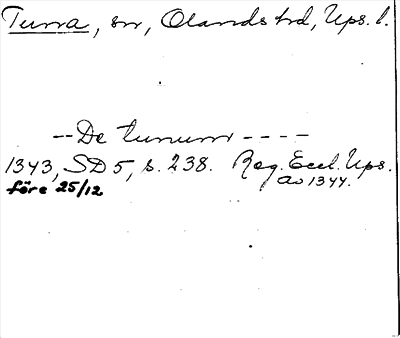 Tuna, sn, Olands hd, Ups. l.
-- De tunum ----
1343, SD 5, s. 238. Reg. Eccl. Ups.
av 1344.
före 25/12